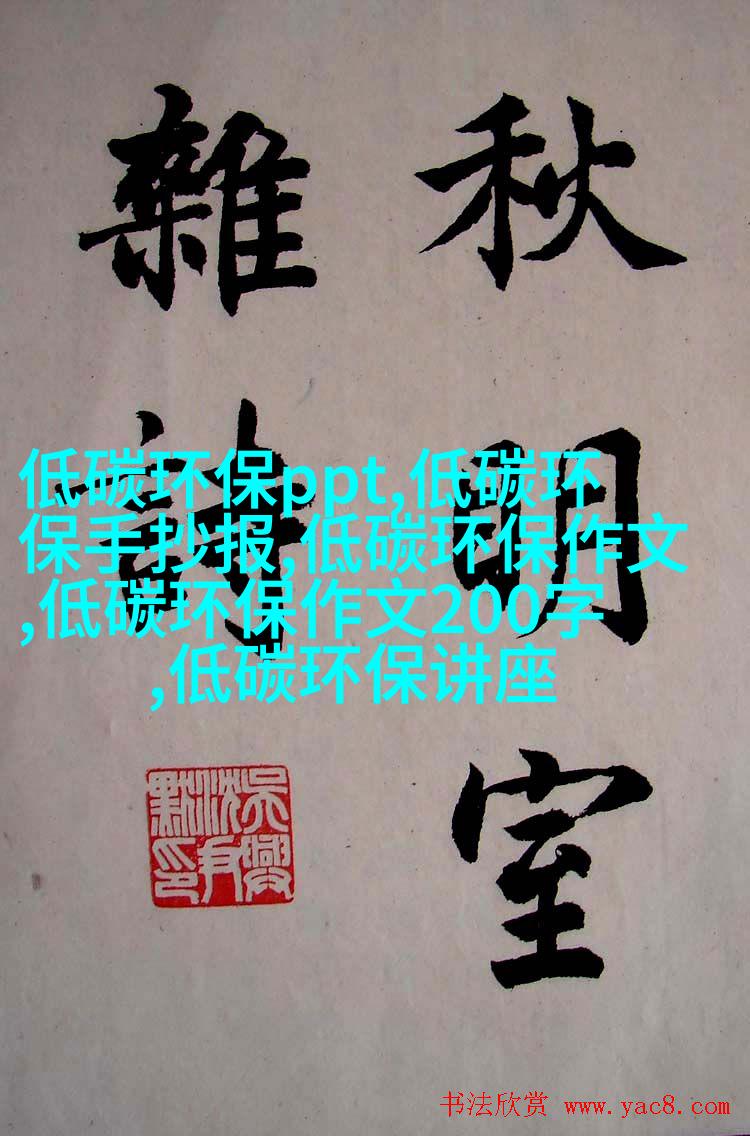 秋明室
雜詩
低碳环保ppt,低碳环
保手抄报,低碳环保作文
,低碳环保作文200字
,低碳环保讲座
吴興
沈尹
默印
书法欣赏 www.yac8.com